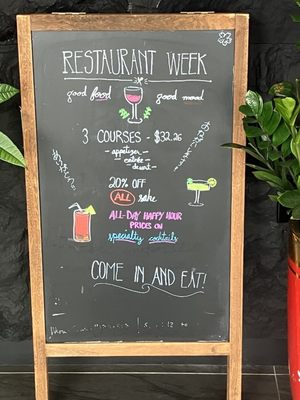 RESTAURANT WEEK
good food good mood
3 COURSES - $32.26
- appetizer -
- entrée -
- desert -
20% OFF
ALL sake
ALL-DAY HAPPY HOUR
PRICES ON
specialty cocktails
COME IN AND EAT!